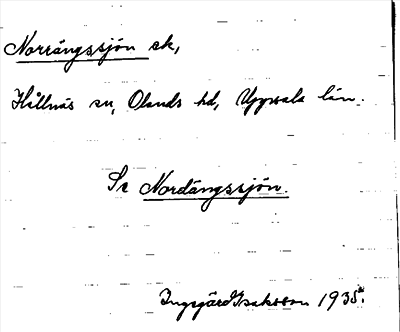 Norrängssjön sk,
Hållnäs sn, Olands hd, Uppsala län.
Se Nordängssjön.
Ingegärd Isaksson 1935.